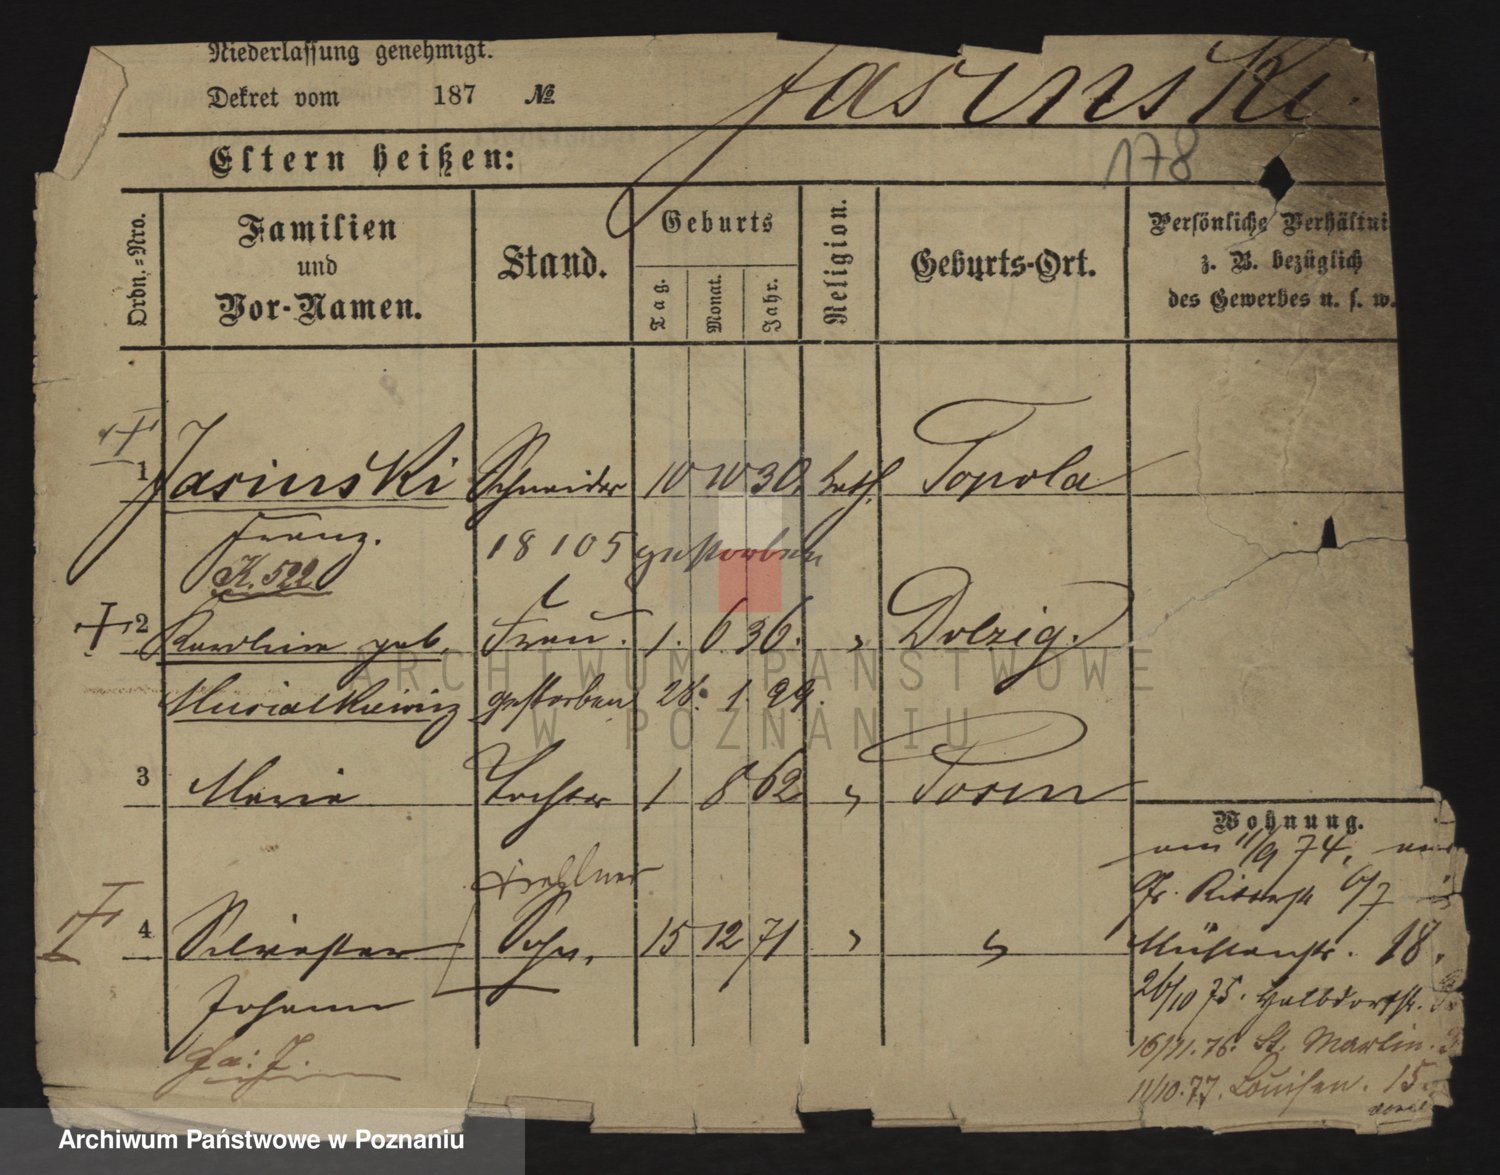 Niederlassung genehmigt.
Dekret vom 187 №
Jasinski.
178
Eltern heißen:
Ordn.-Nro.
Familien
und
Vor-Namen.
Stand.
Geburts
Tag.
Monat.
Jahr.
Religion.
Geburts-Ort.
Persönliche Verhältni
z. B. bezüglich
des Gewerbes u. s. w.
1 Jasinski Schneider 10 10 30. kath. Topola
Franz. 18 10 05 gestorben
K. 522
2 Karoline geb. Frau. 1. 6. 36. " Dolzig.
Musialkiewicz gestorben 28. 1. 99.
3 Maria Tochter 1 8 62 " Posen
Wohnung.
am 11/9 74,
Gr. Ritterstr 6/7
4 Silvester Sohn. 15 12 71 " "
Mühlenstr. 18.
Johann
26/10 75. Halbdorfstr.
16/11. 76. St. Martin.
11/10. 77. Louisen. 15.
ARCHIWUM PAŃSTWOWE
W POZNANIU
Archiwum Państwowe w Poznaniu